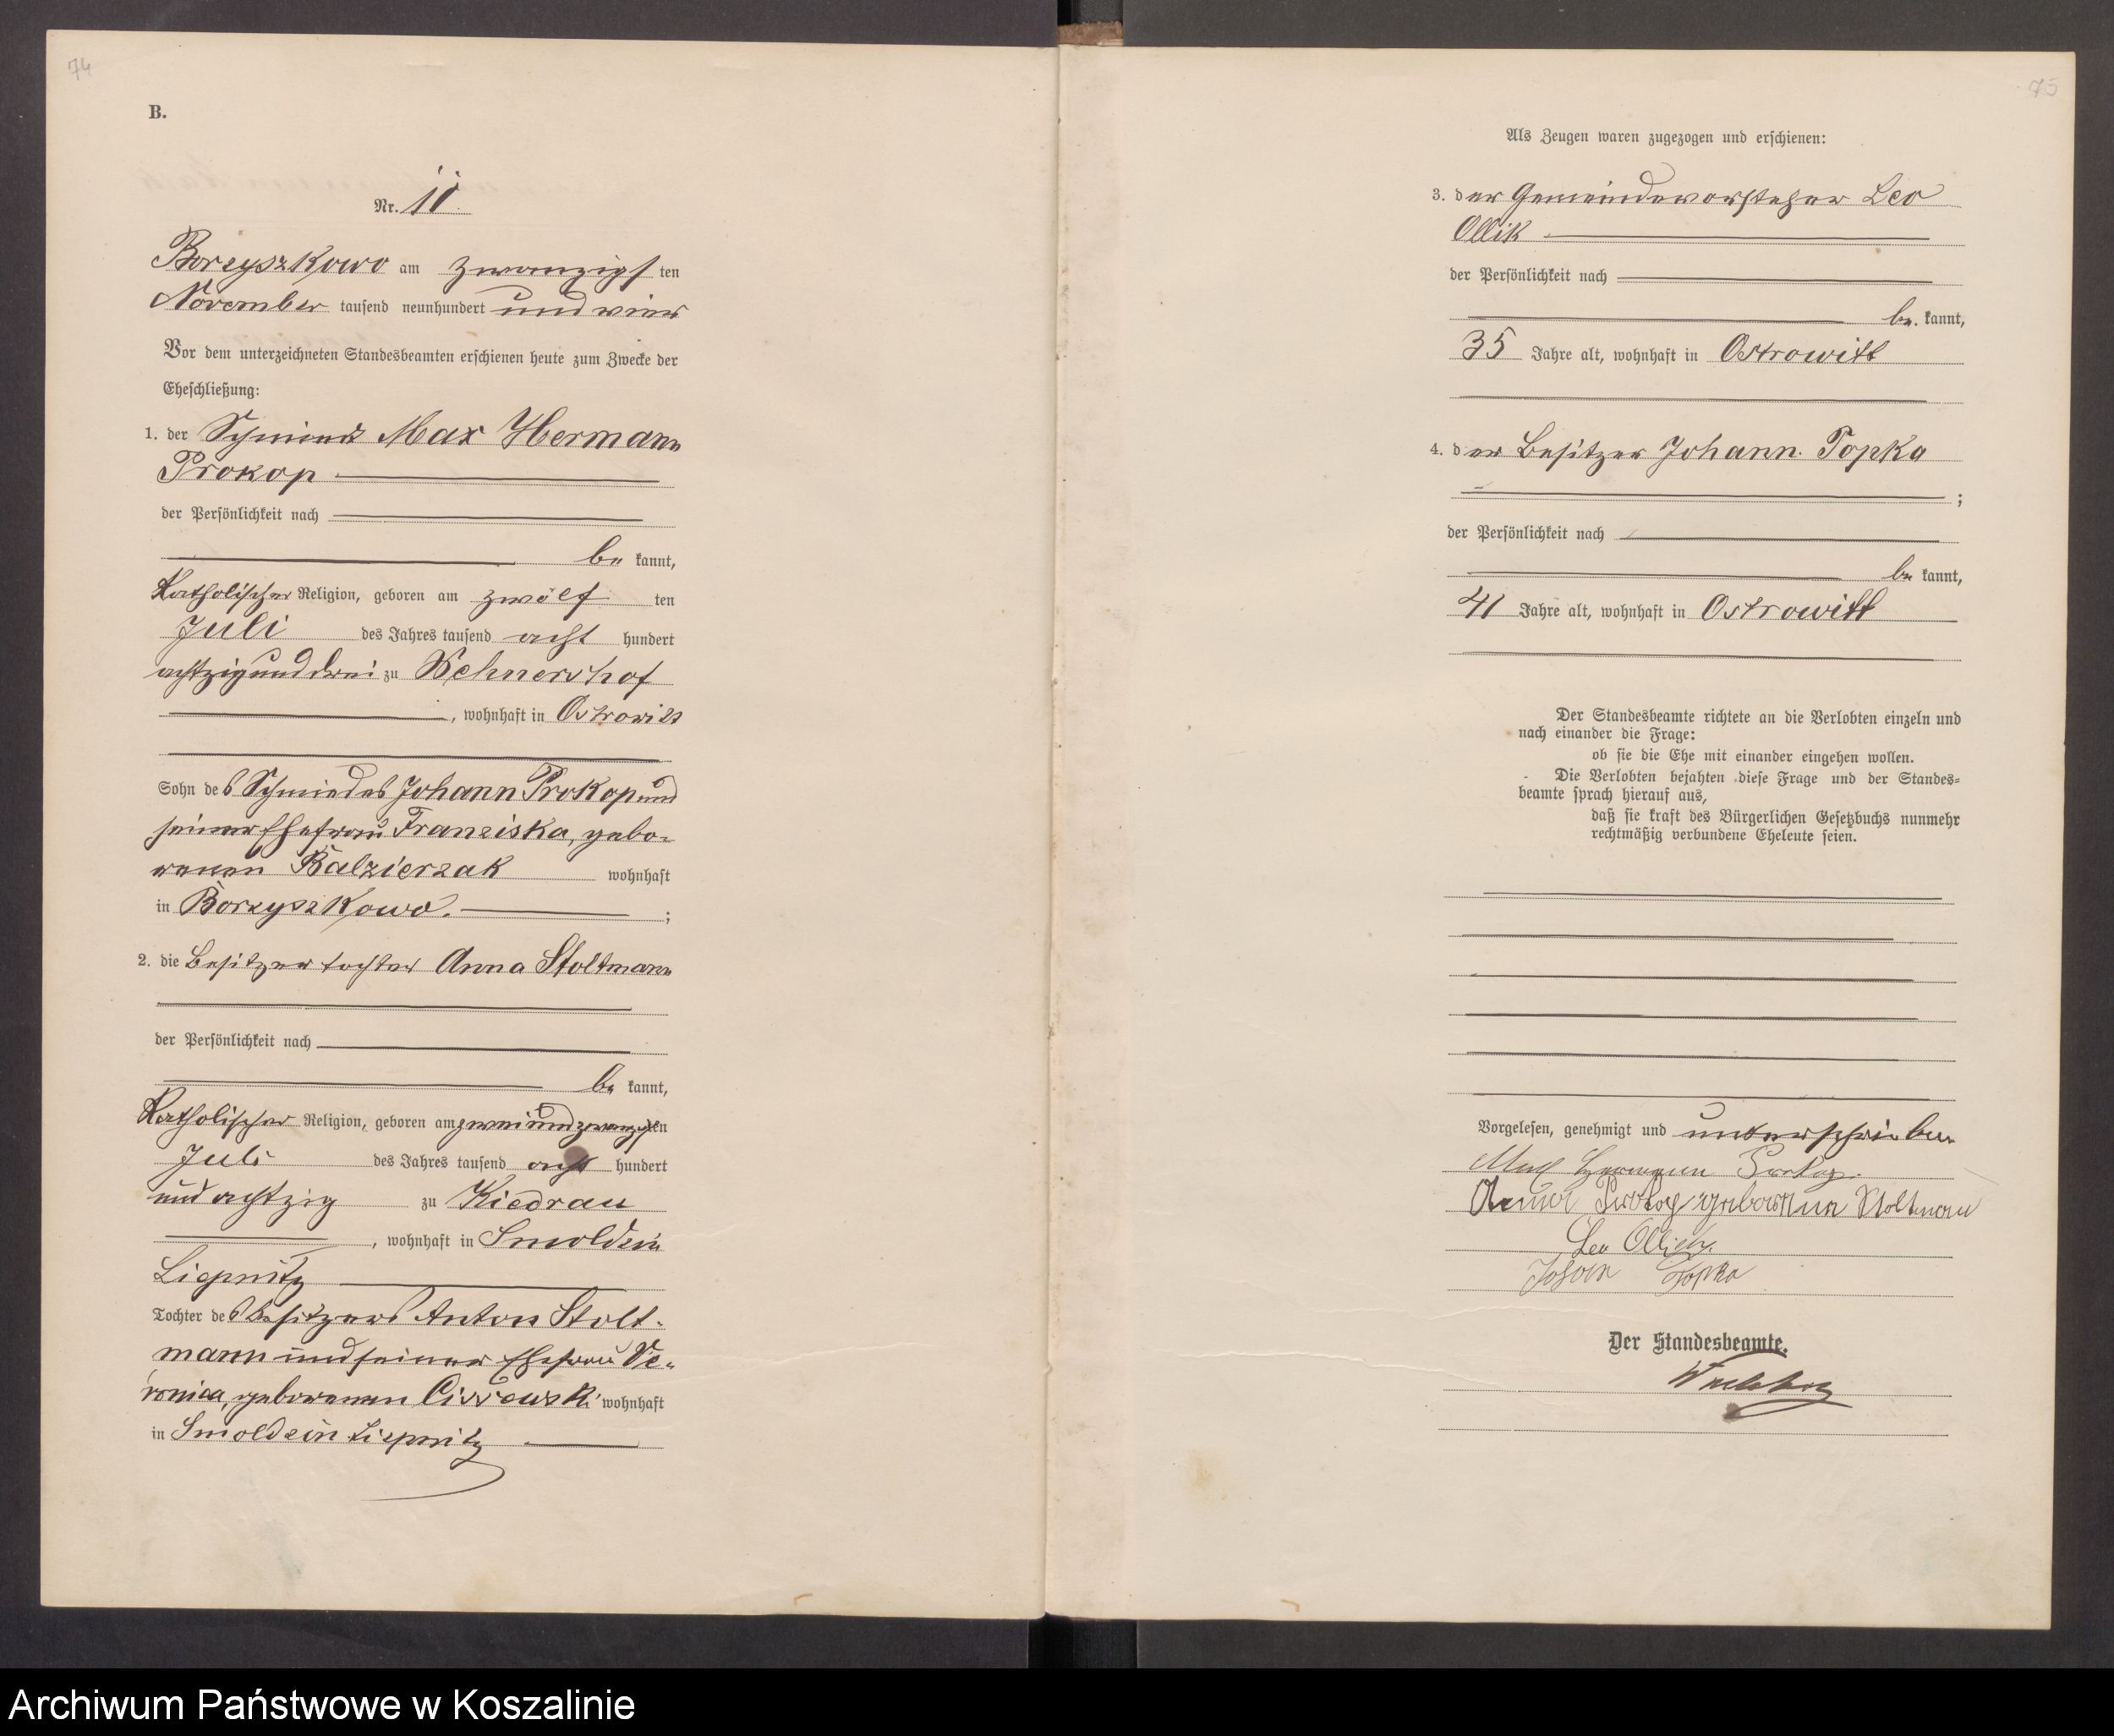 74
B.
Nr. 11
Borzyszkowo am zwanzigsten
November tausend neunhundert und vier
Vor dem unterzeichneten Standesbeamten erschienen heute zum Zwecke der
Eheschließung:
1. der Schmied Max Hermann
Prokop
der Persönlichkeit nach
bekannt,
Katholischer Religion, geboren am zwölften
Juli des Jahres tausend acht hundert
achtzig und drei zu
, wohnhaft in Ostrowitt
Sohn des Schmiedes Johann Prokop und
seiner Ehefrau Franziska, gebo-
renen Balzierzak wohnhaft
in Borzyszkowo. ;
2. die Besitzertochter Anna Stoltmann
der Persönlichkeit nach
bekannt,
Katholischer Religion, geboren am zwei und zwanzigsten
Juli des Jahres tausend acht hundert
und achtzig zu Kiedrau
, wohnhaft in Smoldzin
Liepnitz
Tochter des Besitzers Anton Stolt-
mann und seiner Ehefrau Ve-
ronica, geborenen Cissewski wohnhaft
in Smoldzin Liepnitz
75
Als Zeugen waren zugezogen und erschienen:
3. der Gemeindevorsteher Leo
Ollik
der Persönlichkeit nach
bekannt,
35 Jahre alt, wohnhaft in Ostrowitt
4. der Besitzer Johann Topka
;
der Persönlichkeit nach
bekannt,
41 Jahre alt, wohnhaft in Ostrowitt
Der Standesbeamte richtete an die Verlobten einzeln und
nach einander die Frage:
ob sie die Ehe mit einander eingehen wollen.
Die Verlobten bejahten diese Frage und der Standes-
beamte sprach hierauf aus,
daß sie kraft des Bürgerlichen Gesetzbuchs nunmehr
rechtmäßig verbundene Eheleute seien.
Vorgelesen, genehmigt und unterschrieben
Max Hermann Prokop.
Anna Prokop geborenen Stoltmann
Leo Ollick.
Johan Topka
Der Standesbeamte.
Archiwum Państwowe w Koszalinie